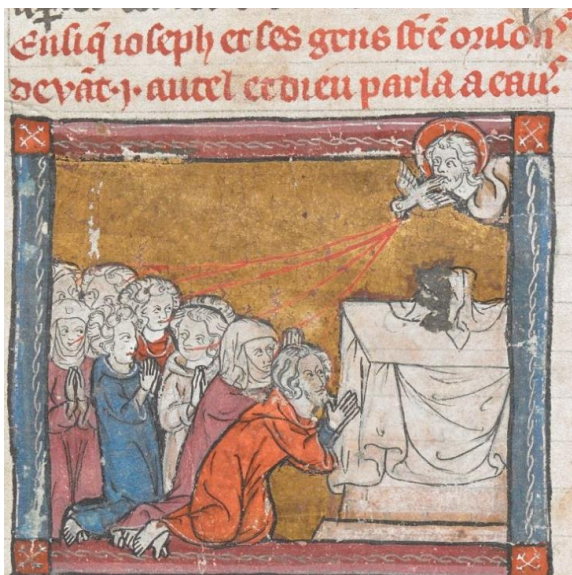 Ensiq̄ ioseph et ses gens sōt ē orison
devāt .j. autel et dieu parla a eaus